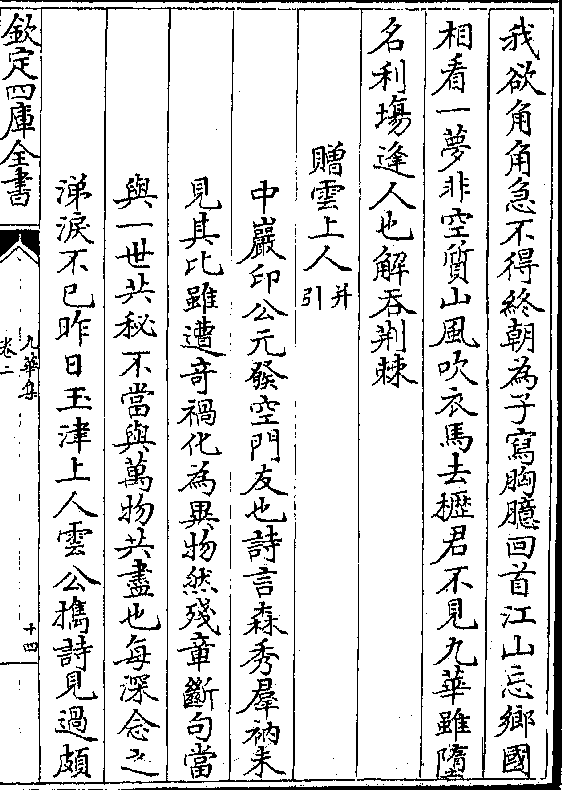 我欲角角急不得終朝為子寫胸臆回首江山忘鄉國
相看一夢非空質山風吹衣馬去櫪君不見九華雖墮
名利場逢人也解吞荆棘
贈雲上人并引
中巖印公元發空門友也詩言森秀羣衲未
見其比雖遭奇禍化為異物然殘章斷句當
與一世共秘不當與萬物共盡也每深念之
涕淚不已昨日玉津上人雲公擕詩見過頗
欽定四庫全書
九華集
卷二
十四